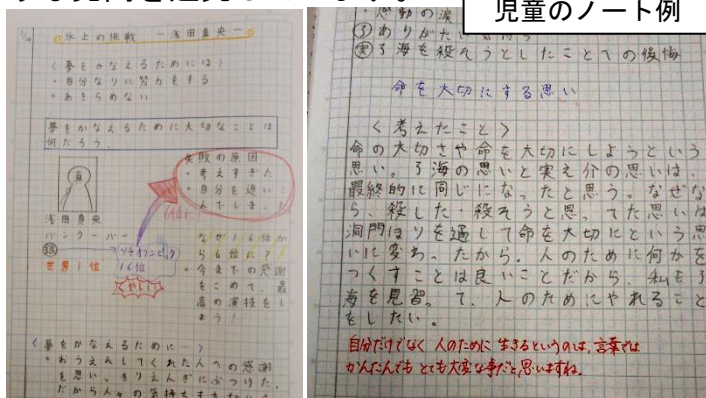 児童のノート例
氷上の挑戦 ー浅田真央ー
〈夢をかなえるためには〉
・自分なりに努力をする
・あきらめない
夢をかなえるために大切なことは
何だろう。
失敗の原因
・考えすぎた
・自分を追いこ
んでしまった
真
浅田真央
バンクーバー
銀
世界1位
ソチオリンピック
16位
くやしい
6位に
なぜ16位か
ら6位に?
・今までの感謝
をこめて、最
高の演技をし
よう!
〈夢をかなえるために〉
・おうえんしてくれた人への感謝
を思い
だから人々の気持ち
・感動の涙
了 ありがたい
実 了海を殺そうとしたことへの後悔
命を大切にする思い
〈考えたこと〉
命の大切さや命を大切にしようという
思い。了海の思いと実之介の思いは、
最終的に同じになったと思う。なぜな
ら、殺した・殺そうと思ってた思いは
洞門ほりを通して命を大切にという思
いに変わったから。人のために何かを
つくすことは良いことだから、私も了
海を見習って、人のためにやれること
をしたい。
自分だけでなく人のために生きるというのは、言葉では
かんたんでもとても大変な事だと思いますね。